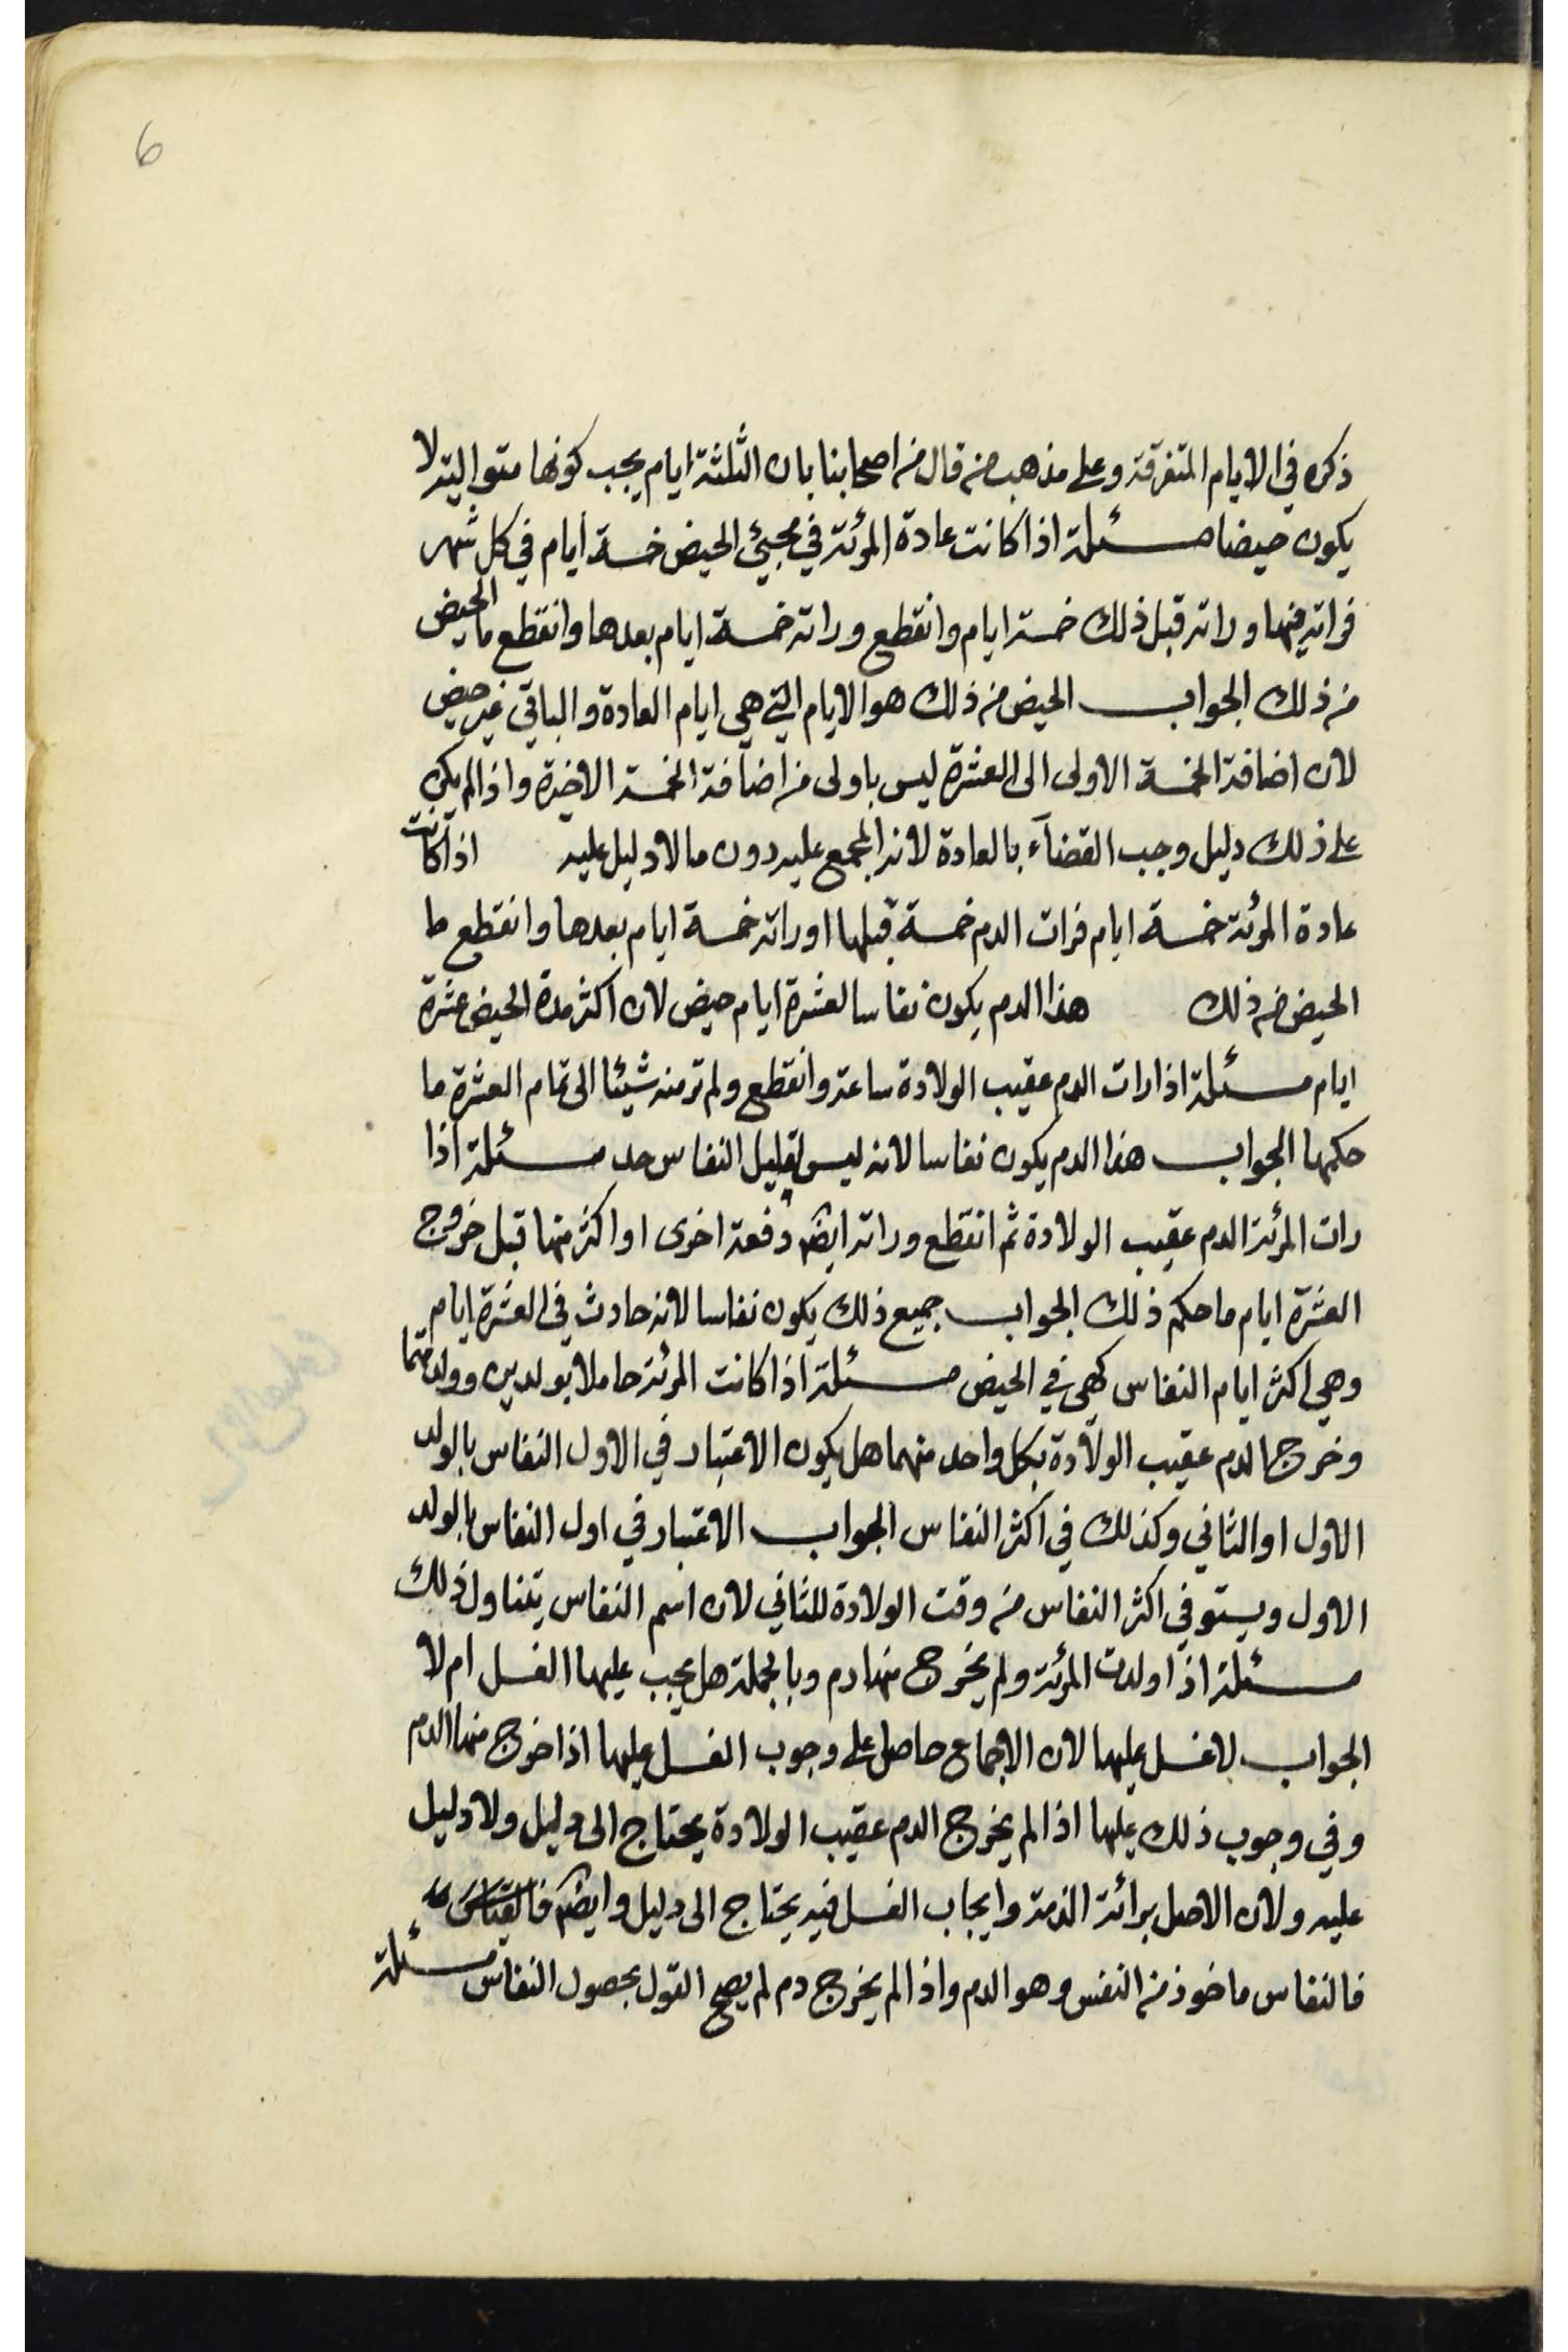 6
ذكره في الايام المتفرقة وعلى مذهب من قال من اصحابنا بان الثلثة ايام يجب كونها متوالية لا
يكون حيضا مسئلة اذا كانت عادة المرئة في مجيئ الحيض خمسة أيام في كل شهر
فراته فيها وراته قبل ذلك خمسة ايام وانقطع وراته خمسة ايام بعدها وانقطع ما الحيض
من ذلك الجواب الحيض من ذلك هو الايام التي هي ايام العادة والباقي غير حيض
لان اضافة الخمسة الاولى الى العشرة ليس باولى من اضافة الخمسة الاخيرة واذا لم يكن
على ذلك دليل وجب القضآء بالعادة لانه المجمع عليه دون ما لا دليل عليه اذا كانت
عادة المرئة خمسة ايام فرات الدم خمسة قبلها او راته خمسة ايام بعدها وانقطع ما
الحيض من ذلك هذا الدم يكون نفاسا لعشرة ايام حيض لان اكثر مدة الحيض عشرة
ايام مسئلة اذا رات الدم عقيب الولادة ساعة وانقطع ولم تر منه شيئا الى تمام العشرة ما
حكمها الجواب هذا الدم يكون نفاسا لانه ليس لقليل النفاس حد مسئلة اذا
رات المرئة الدم عقيب الولادة ثم انقطع وراته ايضا دفعة اخرى او اكثر منها قبل خروج
العشرة ايام ما حكم ذلك الجواب جميع ذلك يكون نفاسا لانه حادث في العشرة ايام
وهي اكثر ايام النفاس كهي في الحيض مسئلة اذا كانت المرئة حاملا بولدين وولدتهما
وخرج الدم عقيب الولادة بكل واحد منهما هل يكون الاعتبار في الاول النفاس بالولد
الاول او الثاني وكذلك في اكثر النفاس الجواب الاعتبار في اول النفاس بالولد
الاول ويستوفي اكثر النفاس من وقت الولادة للثاني لان اسم النفاس يتناول ذلك
مسئلة اذا ولدت المرئة ولم يخرج منها دم وبالجملة هل يجب عليها الغسل ام لا
الجواب لا غسل عليها لان الاجماع حاصل على وجوب الغسل عليها اذا خرج منها الدم
وفي وجوب ذلك عليها اذا لم يخرج الدم عقيب الولادة يحتاج الى دليل ولا دليل
عليه ولان الاصل برائة الذمة وايجاب الغسل فيه يحتاج الى دليل وايضا
فالنفاس ماخوذ من النفس وهو الدم واذا لم يخرج دم لم يصح القول بحصول النفاس مسئلة